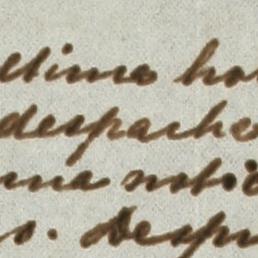 ltima ho
despache
una notic
s. Despu